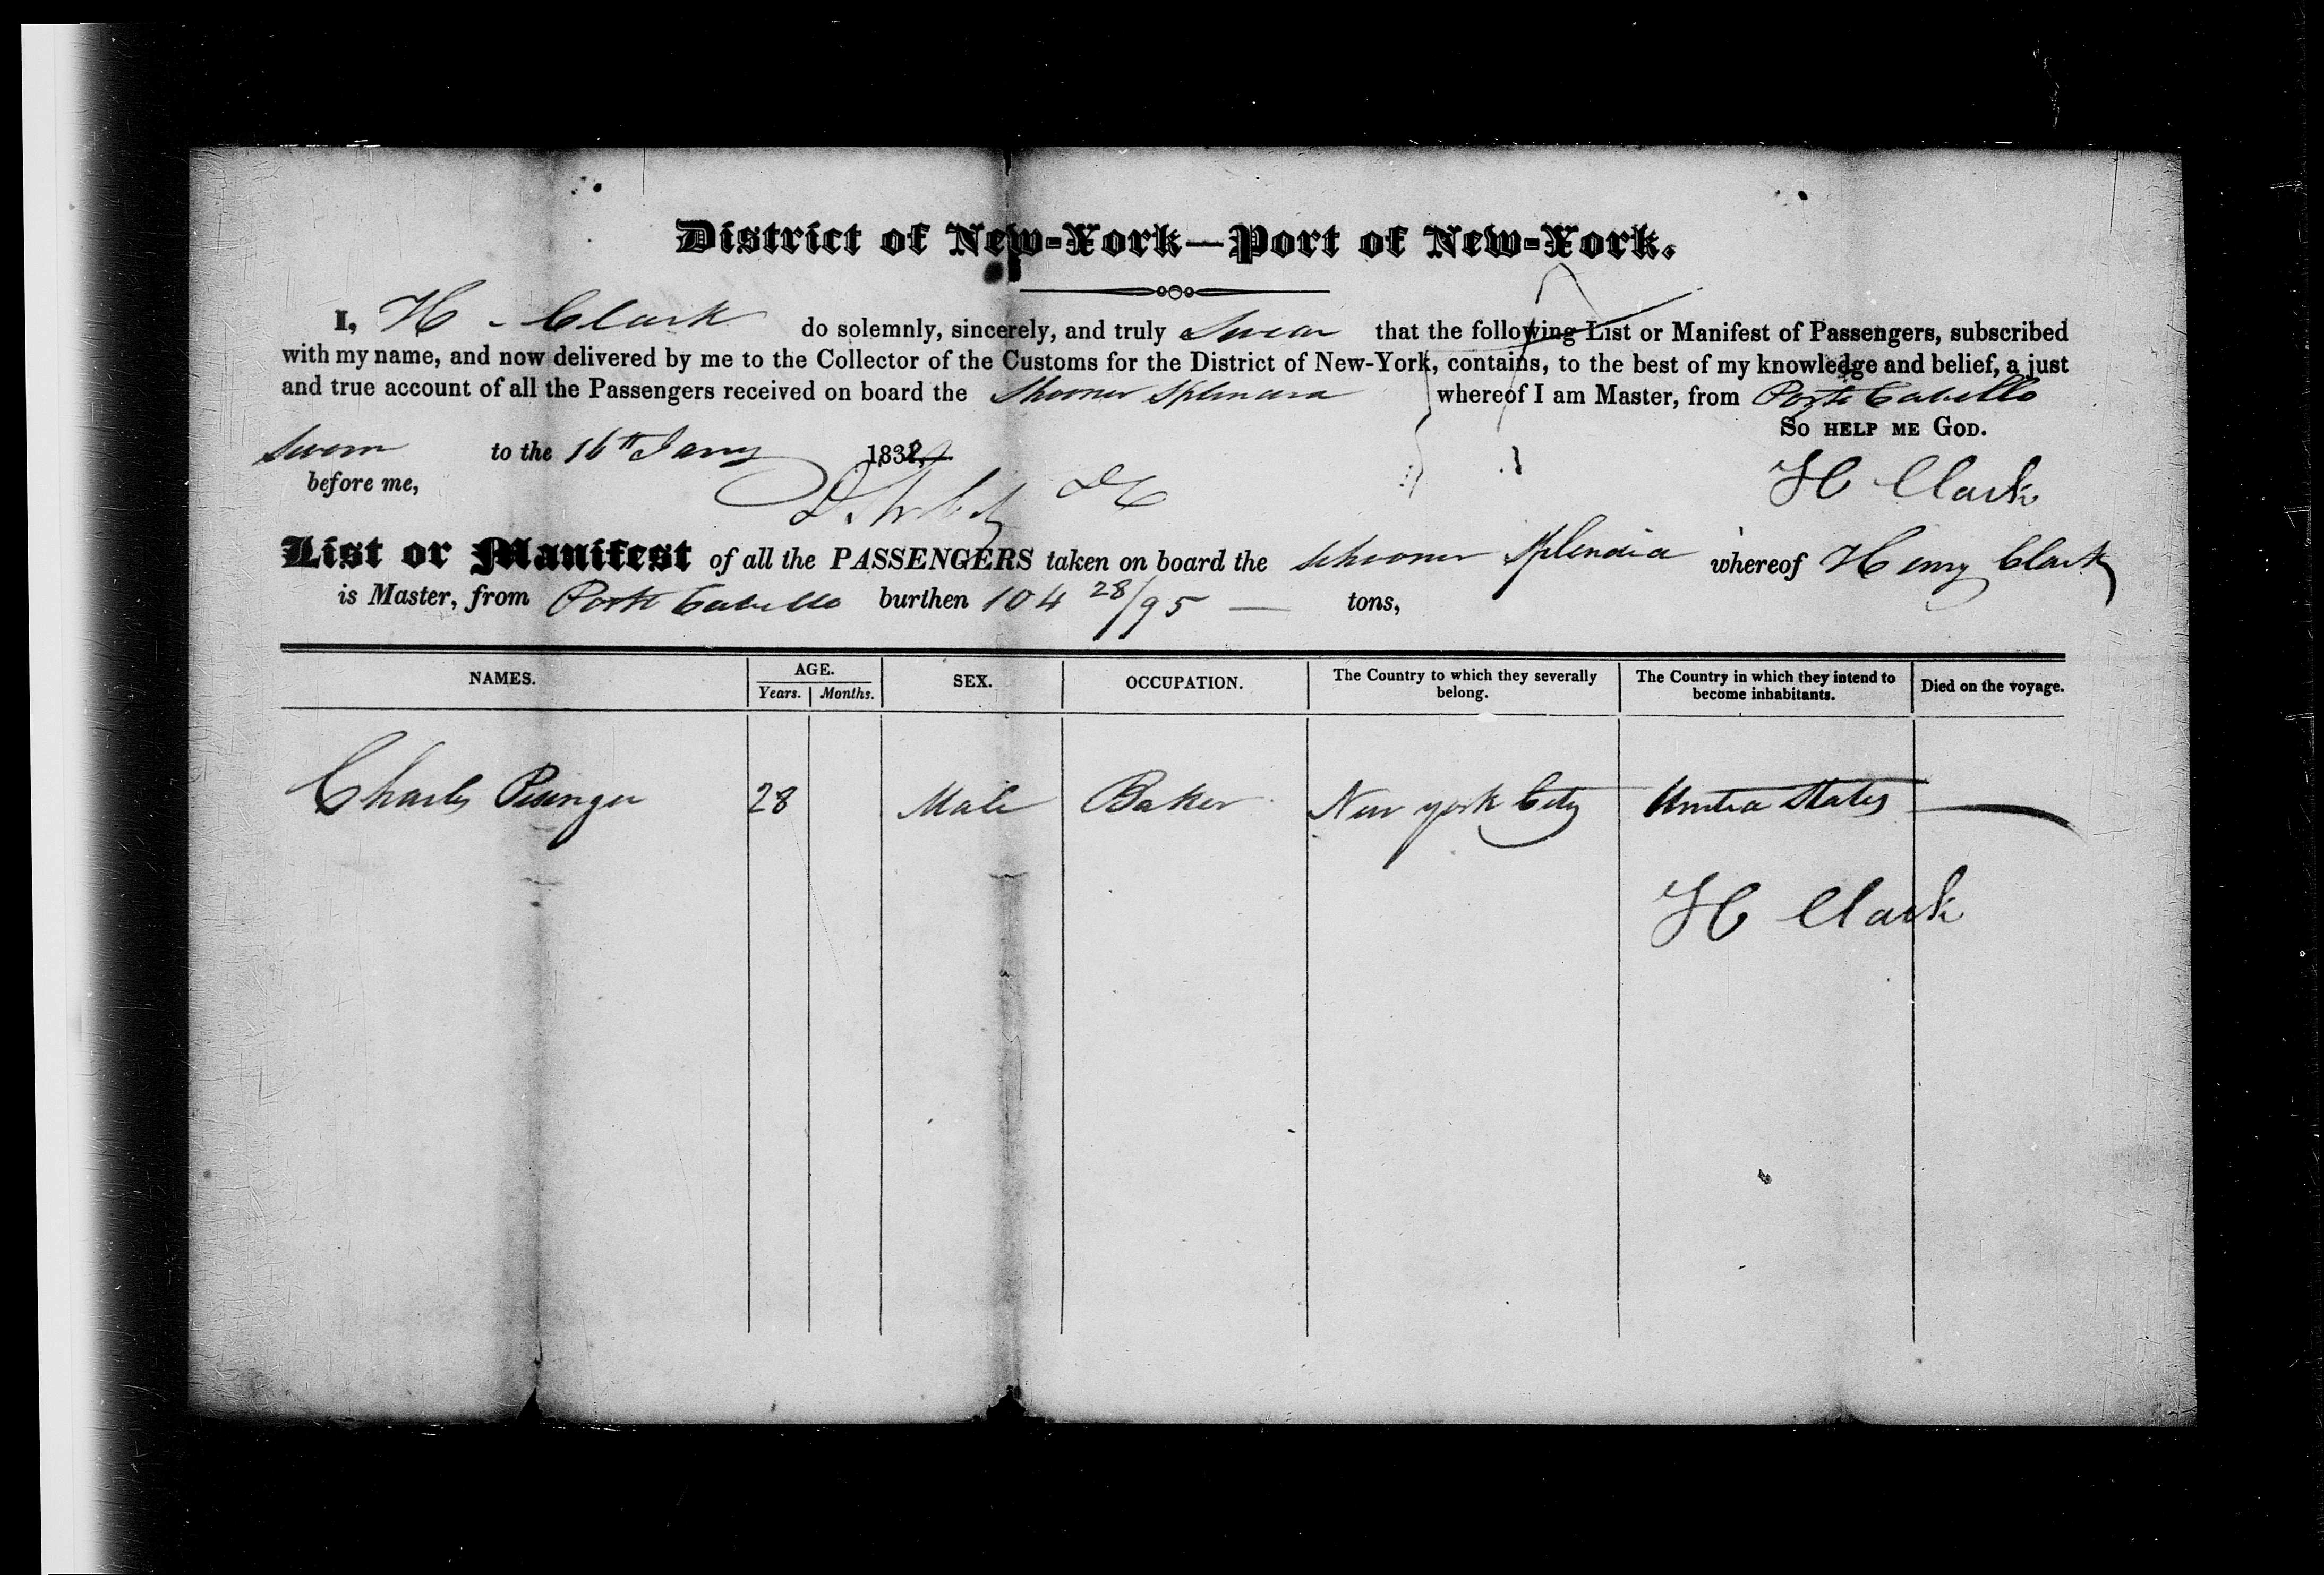 District of New-York—Port of New-York.
I, H - Clark do solemnly, sincerely, and truly Swear that the following List or Manifest of Passengers, subscribed
with my name, and now delivered by me to the Collector of the Customs for the District of New-York, contains, to the best of my knowledge and belief, a just
and true account of all the Passengers received on board the Shooner Splendid whereof I am Master, from Porto Cabello
So help me God.
Sworn to the 16th Jany 183
before me,
H Clark
List or Manifest of all the PASSENGERS taken on board the Schooner Splendid whereof Henry Clark
is Master, from Porto Cabello burthen 104 28/95 — tons,
NAMES. AGE. Years. Months. SEX. OCCUPATION. The Country to which they severally belong. The Country in which they intend to become inhabitants. Died on the voyage.
Charles 28 Male Baker New york City United States —
H Clark